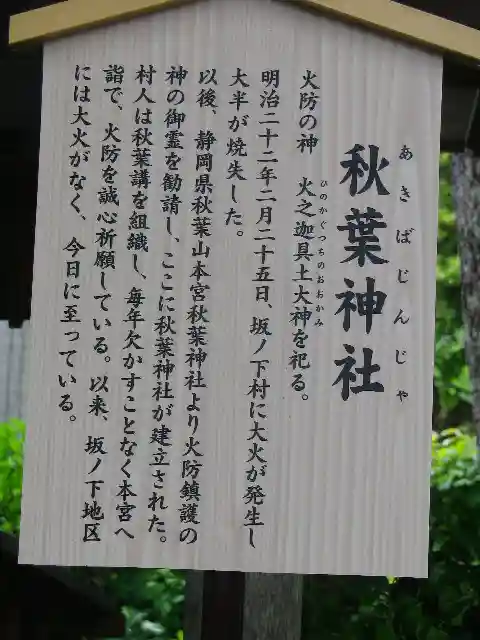 あきばじんじゃ
秋葉神社
ひのかぐつちのおおかみ
火防の神　火之迦具土大神を祀る。
明治二十二年二月二十五日、坂ノ下村に大火が発生し
大半が焼失した。
以後、静岡県秋葉山本宮秋葉神社より火防鎮護の
神の御霊を勧請し、ここに秋葉神社が建立された。
村人は秋葉講を組織し、毎年欠かすことなく本宮へ
詣で、火防を誠心祈願している。以来、坂ノ下地区
には大火がなく、今日に至っている。